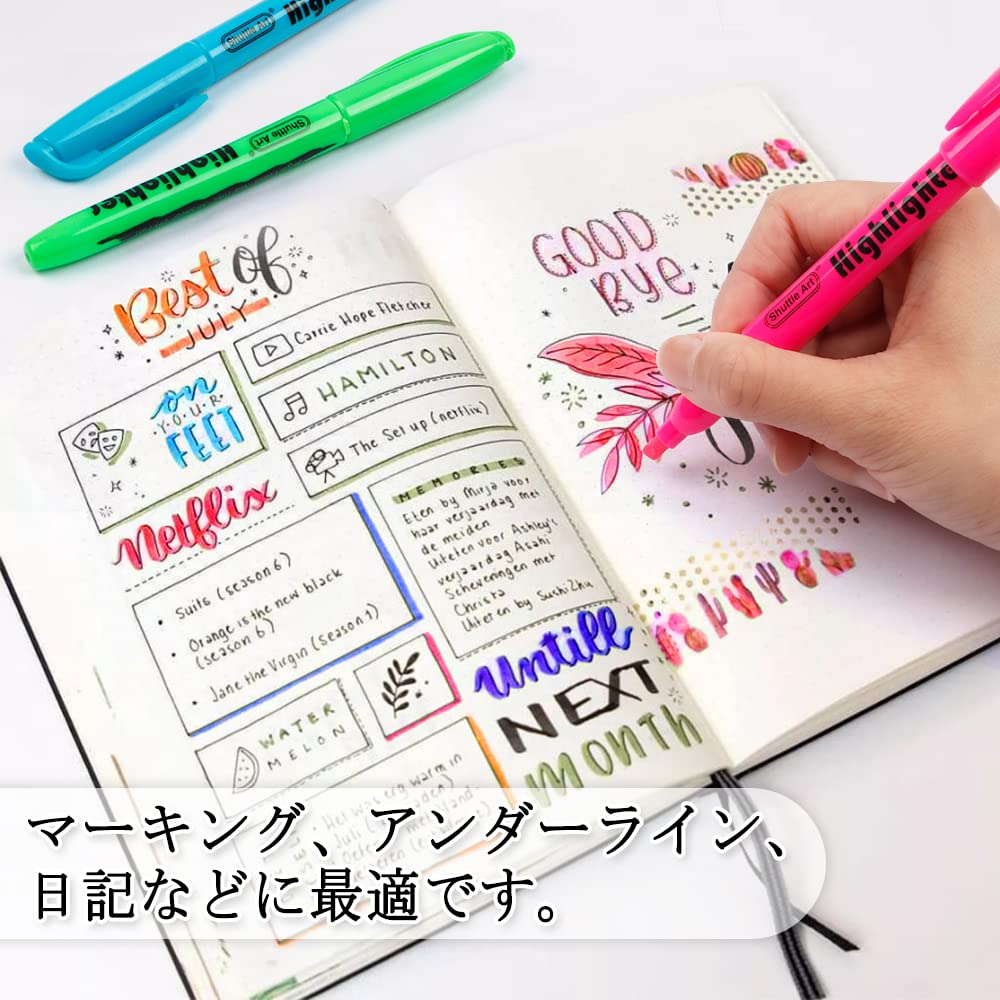 Highlighter
Shuttle Art
Highlighter
Shuttle Art
Highlighter
Shuttle Art
Best of
JULY
on
YOUR
FEET
Carrie Hope Fletcher
HAMILTON
The Set up (netflix)
Netflix
• Suits (season 6)
• Orange is the new black
(season 6)
• Jane the Virgin (season 1)
MEMORIES
Eten by Mirja voor
haar verjaardag met
de meiden
Uiteten voor Ashley's
verjaardag Asahi
Scheveningen met
Christa
Uiteren by Sushi Zhu
WATER
MELON
Het was erg warm in
Juli
Untill
NEXT
MONTH
GOOD
Bye
マーキング、アンダーライン、
日記などに最適です。